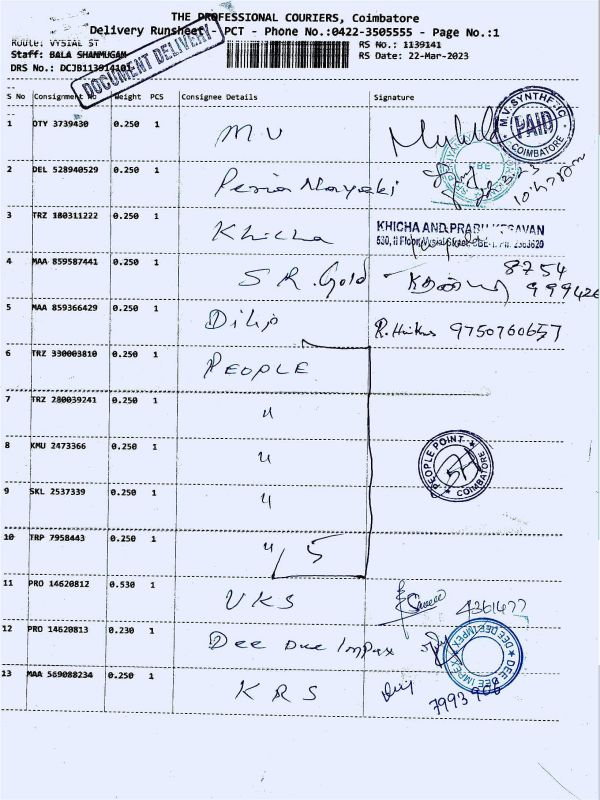 THE PROFESSIONAL COURIERS, Coimbatore
Delivery Runsheet - PCT - Phone No.:0422-3505555 - Page No.:1
Route: VYSIAL ST
RS No.: 1139141
Staff: BALA SHANMUGAM
RS Date: 22-Mar-2023
DRS No.: DCJB113914101
DOCUMENT DELIVERY
S No Consignment No Weight PCS Consignee Details Signature
1 OTY 3739430 0.250 1 M V
M.V. SYNTHETIC PAID COIMBATORE
2 DEL 528940529 0.250 1 Peria Nayaki
22-3-23
3 TRZ 180311222 0.250 1 Khicha
KHICHA AND PRABU KESAVAN
530, II Floor, Vysial Street, CBE-1. PH: 2383620
4 MAA 859587441 0.250 1 S R. Gold
8754
99942
5 MAA 859366429 0.250 1 Dilip 9750760657
6 TRZ 330003810 0.250 1 PEOPLE
7 TRZ 280039241 0.250 1 "
8 KMU 2473366 0.250 1 "
PEOPLE POINT COIMBATORE
9 SKL 2537339 0.250 1 "
10 TRP 7958443 0.250 1 " 5
11 PRO 14620812 0.530 1 VKS
12 PRO 14620813 0.230 1 Dee Dee Impex
DEE DEE IMPEX DEE DEE IMPEX
13 MAA 569088234 0.250 1 K R S
7993 906